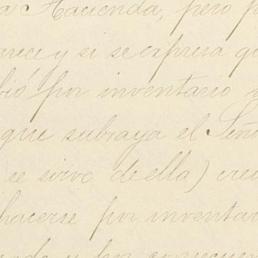 a Hacienda, pero p
arece y si se expresa q
bió por inventario
que subraya el Seño
se sirve de ella) cre
hacerse por inventar